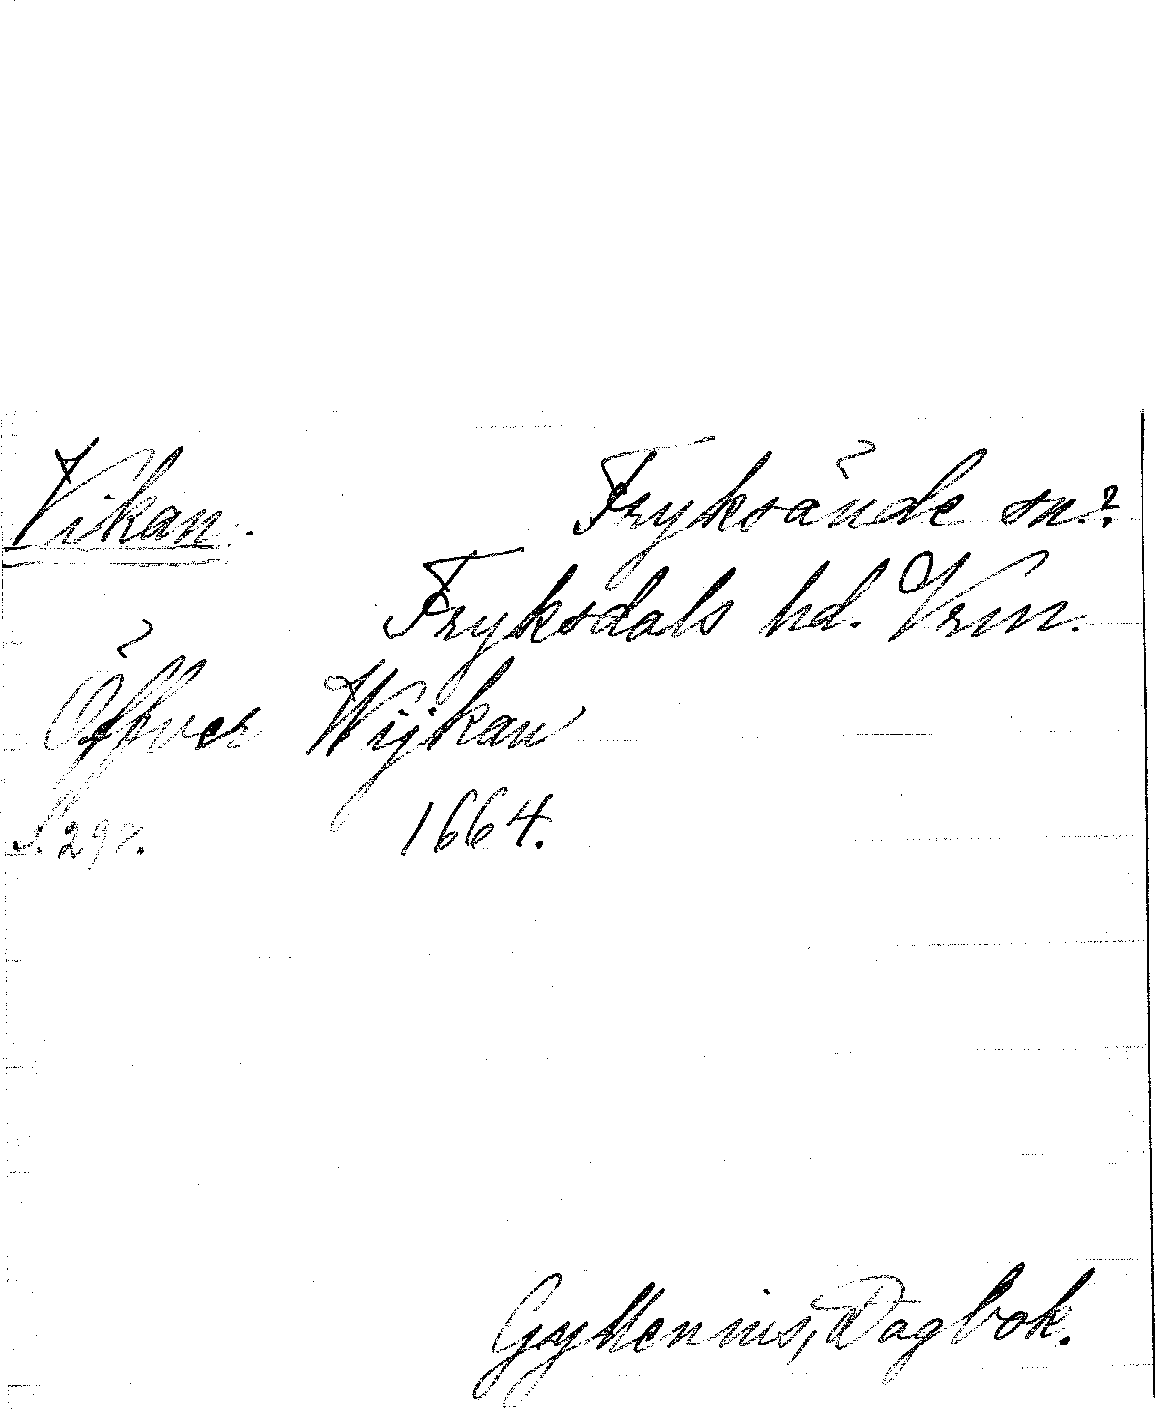 Vikan.
Fryksände sn?
Fryksdals hd. Vrm.
Öffver Wijkan
S. 297. 1664.
Gyllenius, Dagbok.